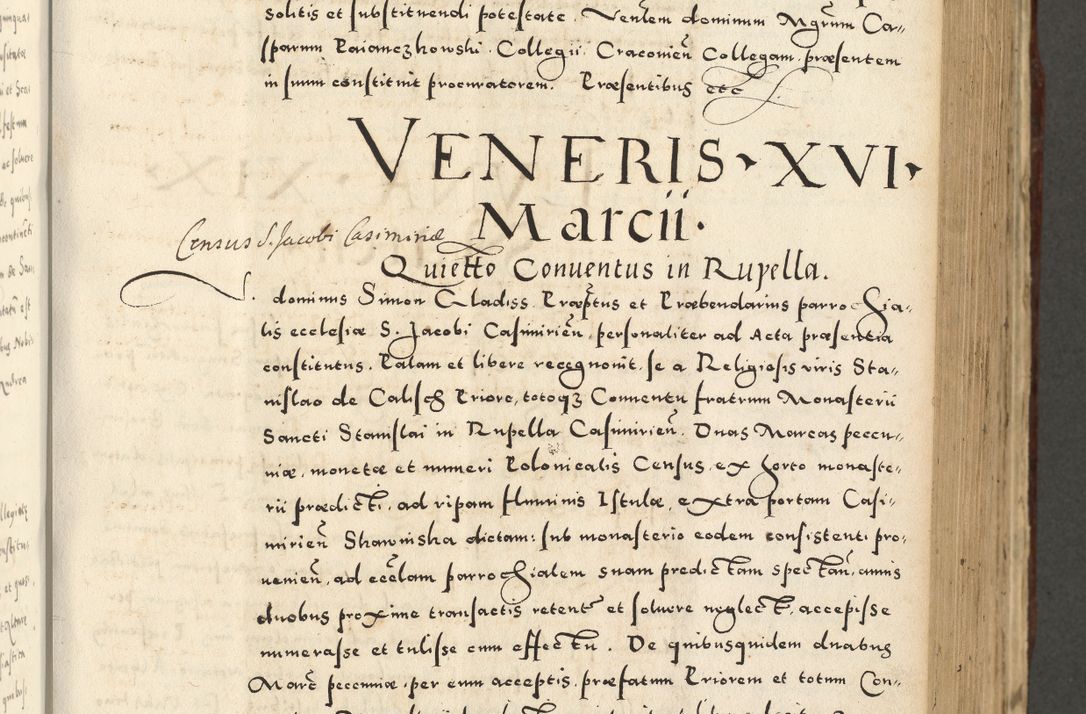 solitis et substituendi potestate. Venlem dominum Mgrum Ca„
sparum Raianczkowski. Collegii. Cracovien̄ Collegam. præsentem
in suum constituit procuratorem. Præsentibus etc
VENERIS · XVI ·
Marcii ·
Census S. Jacobi Casimiriæ
Quietto Conuentus in Rupella.
dominus Simon Gladiss. Præptus et Præbendarius parrochia„
lis ecclesiæ S. Jacobi Casimirien̄, personaliter ad Acta præsentia
constitutus. Palam et libere recognouit, se a Religiosis viris Sta„
nislao de Calisch Priore, totoqz Conuentu fratrum Monasterii
Sancti Stanislai in Rupella Casimirien̄. Duas Marcas peccu„
niæ, monetæ et numeri Polonicalis Census, ex horto monaste„
rii prædicti, ad ripam fluminis Istulæ, extra portam Casi„
mirien̄ Skawinska dictam: sub monasterio eodem consistenti pro„
uenien̄, ad ecclam parrochialem suam predictam spectan̄, annis
duobus proxime transactis retent et soluere neglect, accepisse
numerasse et tulisse cum effectu. De quibusquidem duabus
Marc̄ peccuniæ per eum acceptis, præfatum Priorem et totum Con„